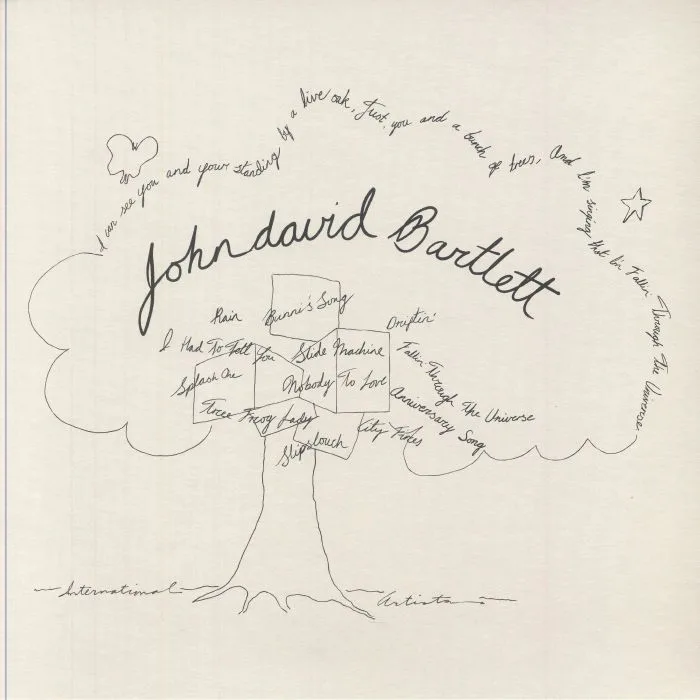 I can see you and your standing by a live oak, Just you and a bunch of trees, And I'm singing that I'm Fallin' Through The Universe
John david Bartlett
Rain
Bunni's Song
Driftin'
I Had To Tell You
Slide Machine
Fallin Through The Universe
Splash One
Nobody To Love
Anniversary Song
Tree Frog Lady
City Fires
Slipslouch
International Artists